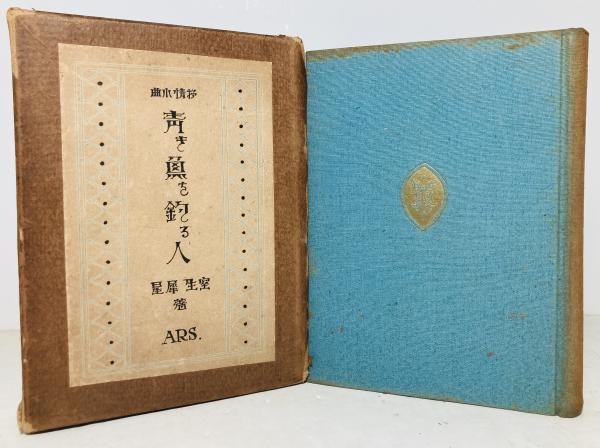 抒情小曲
青き魚を釣る人
室生犀星
著
ARS.